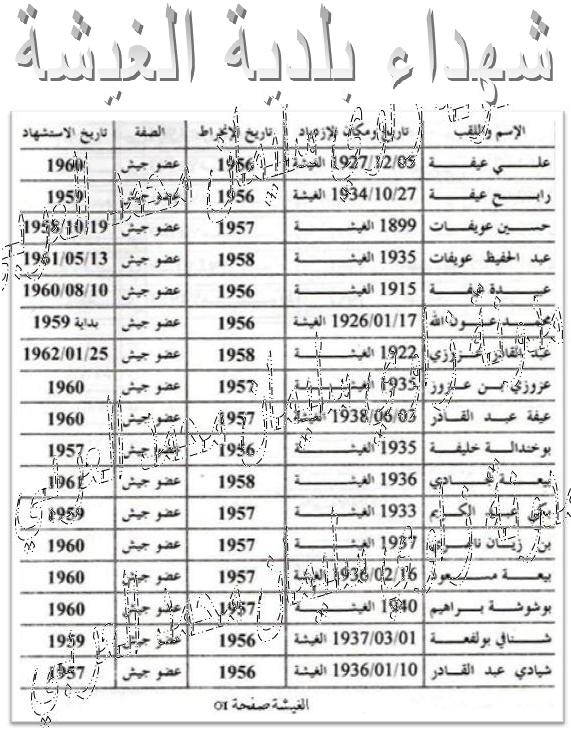 شهداء بلدية الغيشة
الإسم واللقب تاريخ ومكان الإزدياد تاريخ الإنخراط الصفة تاريخ الاستشهاد
علي عيفة 1927/12/05 الغيشة 1956 عضو جيش 1960
رابح عيفة 1934/10/27 الغيشة 1956 عضو جيش 1959
حسين عويفات 1899 الغيشة 1957 عضو جيش 1958/10/19
عبد الحفيظ عويفات 1935 الغيشة 1958 عضو جيش 1961/05/13
عبدة عيفة 1915 الغيشة 1956 عضو جيش 1960/08/10
محمد عون الله 1926/01/17 الغيشة 1956 عضو جيش بداية 1959
عبد القادر عزوزي 1922 الغيشة 1958 عضو جيش 1962/01/25
عزوزي بن عزوز 1935 الغيشة 1957 عضو جيش 1960
عيفة عبد القادر 1938/06/03 الغيشة 1957 عضو جيش 1960
بوخندالة خليفة 1935 الغيشة 1956 عضو جيش 1957
بيعة 1936 الغيشة 1958 عضو جيش 1961
عبد الكريم 1933 الغيشة 1957 عضو جيش 1959
بن زيان 1937 الغيشة 1957 عضو جيش 1960
بيعة مسعود 1936/02/16 الغيشة 1957 عضو جيش 1960
بوشوشة براهيم 1940 الغيشة 1957 عضو جيش 1960
شنافي بولفعة 1937/03/01 الغيشة 1956 عضو جيش 1959
شيادي عبد القادر 1936/01/10 الغيشة 1956 عضو جيش 1957
الغيشة صفحة 01